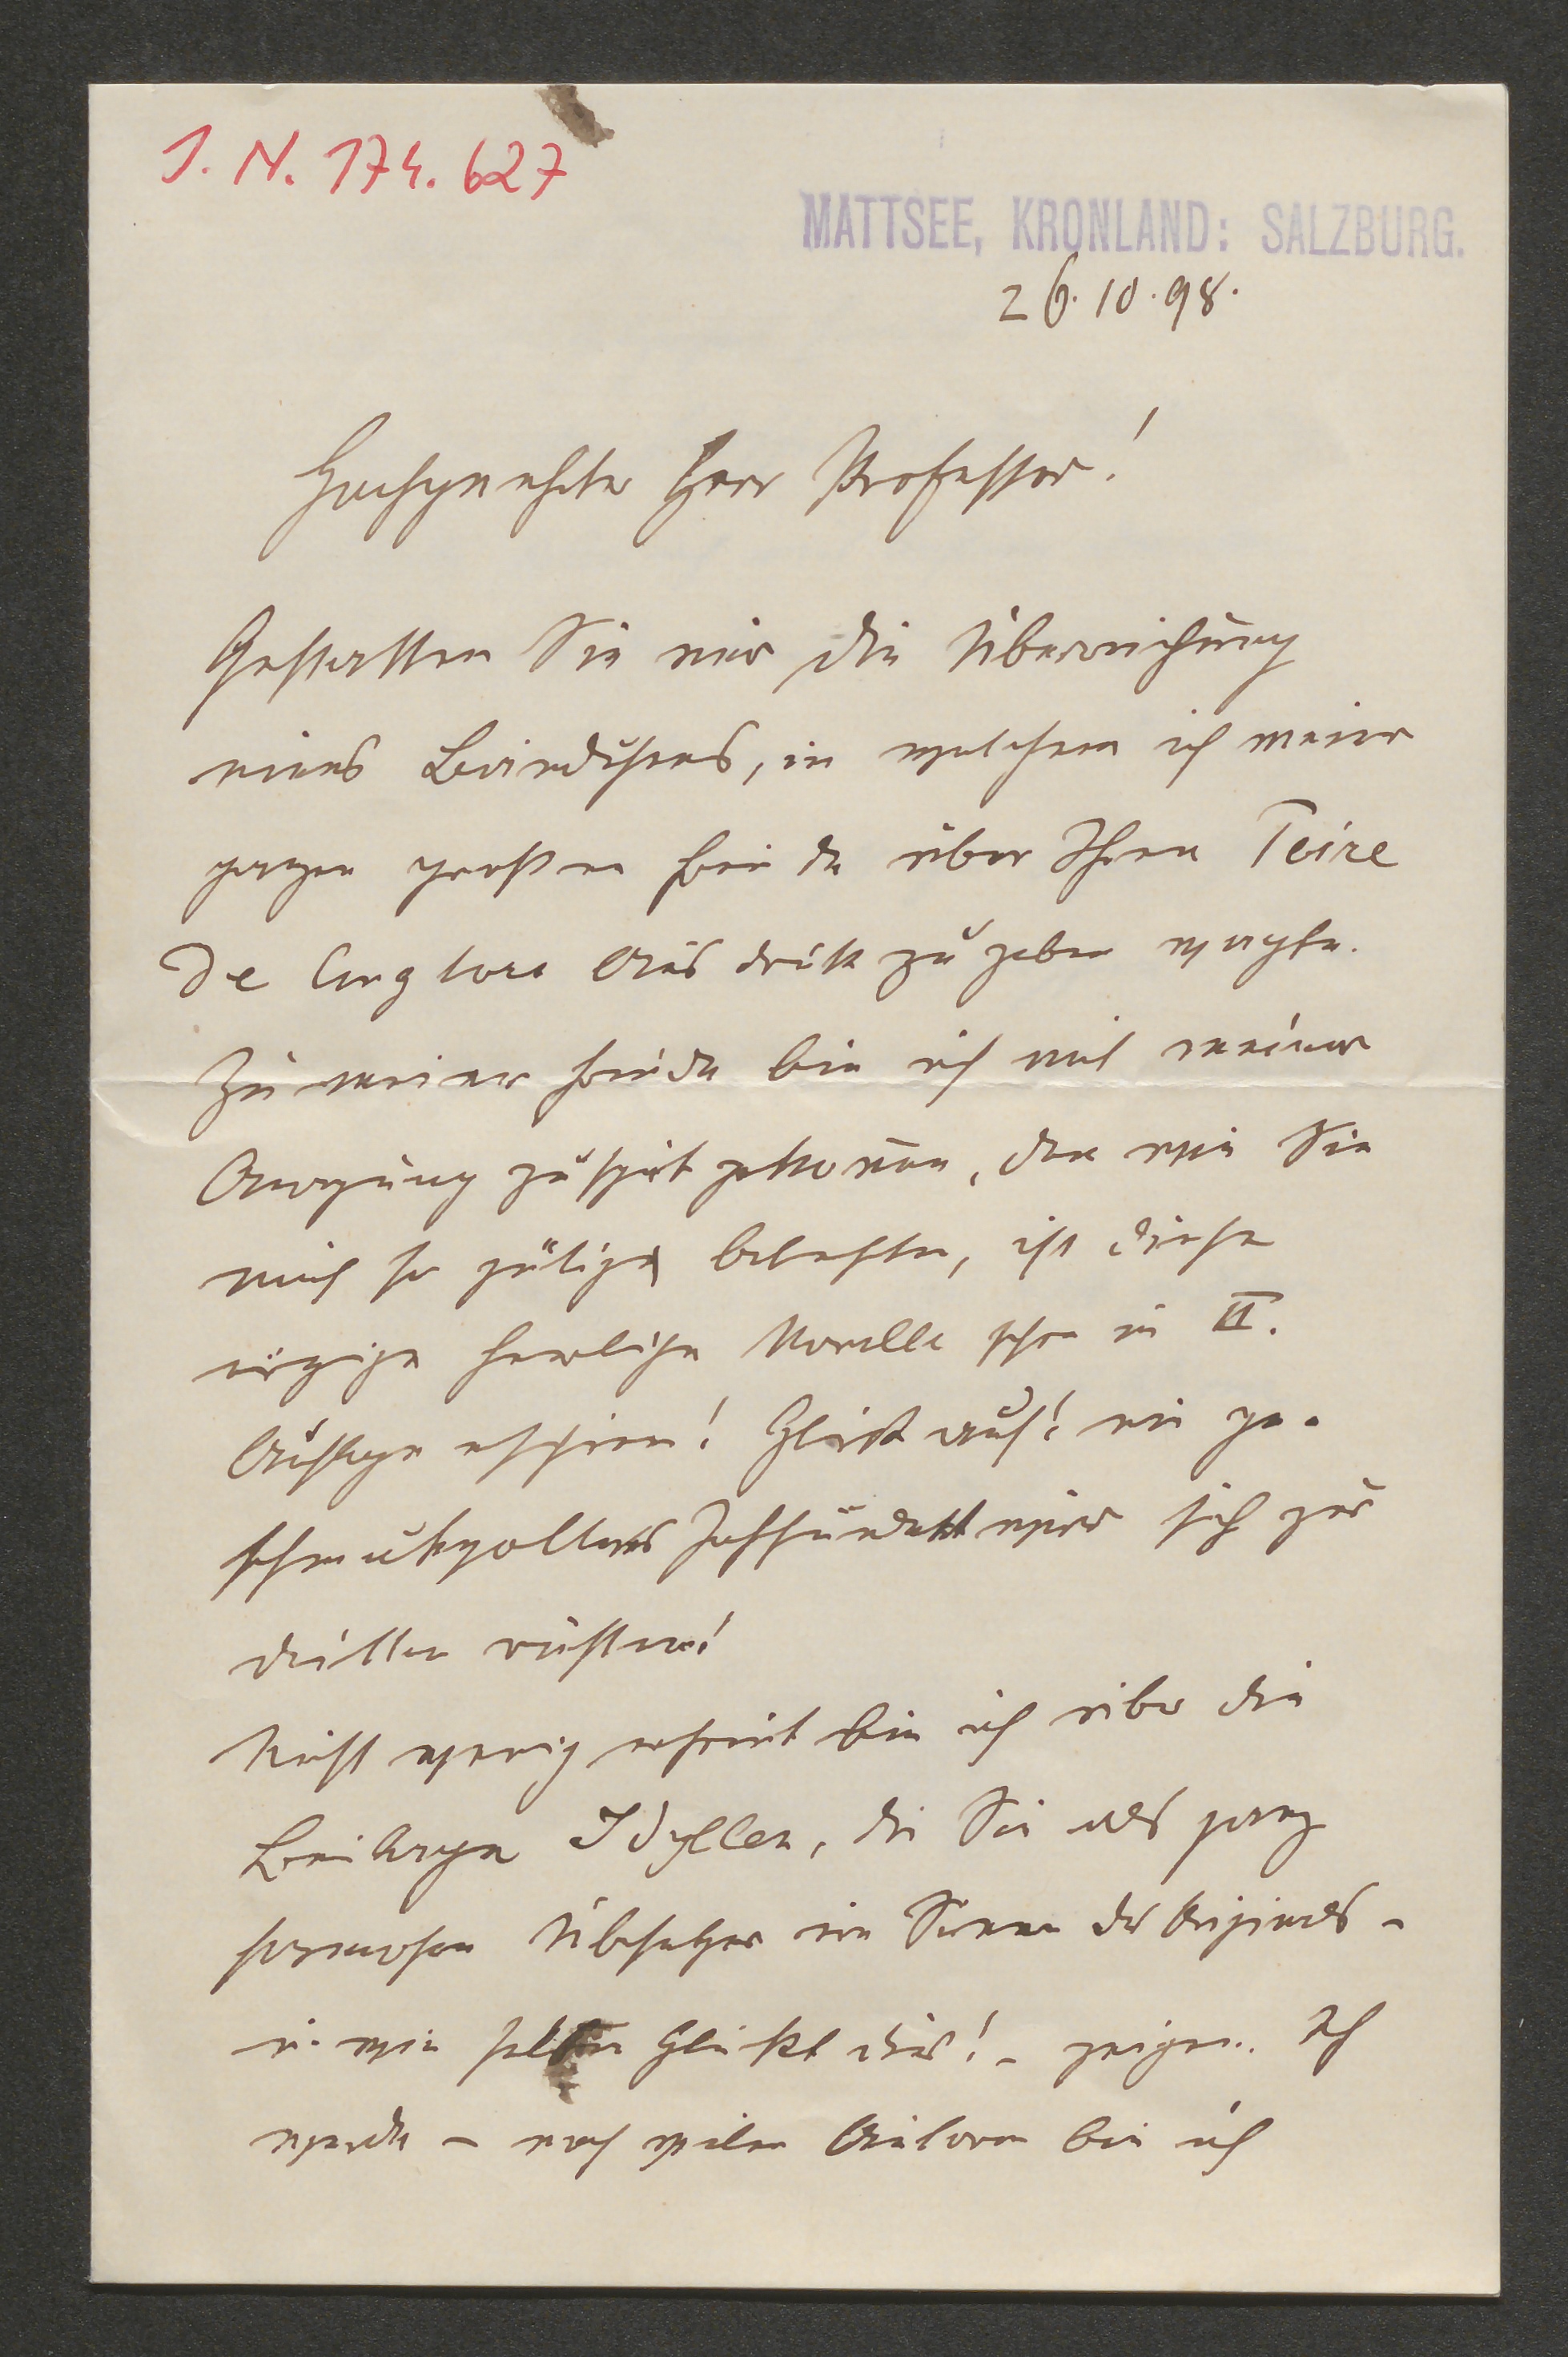 J. N. 174.627
MATTSEE, KRONLAND: SALZBURG.
26.10.98.
Hochgeehrter Herr Professor!
Gestatten Sie mir die Überreichung
eines Bändchens, in welchem ich meiner
ganzen großen Freude über Ihren Peire
de Ausdruck zu geben wagte.
Zu meiner Freude bin ich mit meiner
Anregung zu spät gekommen, denn wie Sie
mich so gütig belehrten, ist diese
einzige herrliche Novelle schon in II.
Auflage erschienen! Glück auf! ein ge-
schmackvolleres Jahrhundert wird sich zur
dritten rüsten!
Nicht wenig erfreut bin ich über die
Beilage Idyllen, die Sie als ganz
famosen Übersetzer im Sinne des Originals –
u. wie selten glückt dies! – zeigen. Ich
werde – nach vielen Autoren bin ich